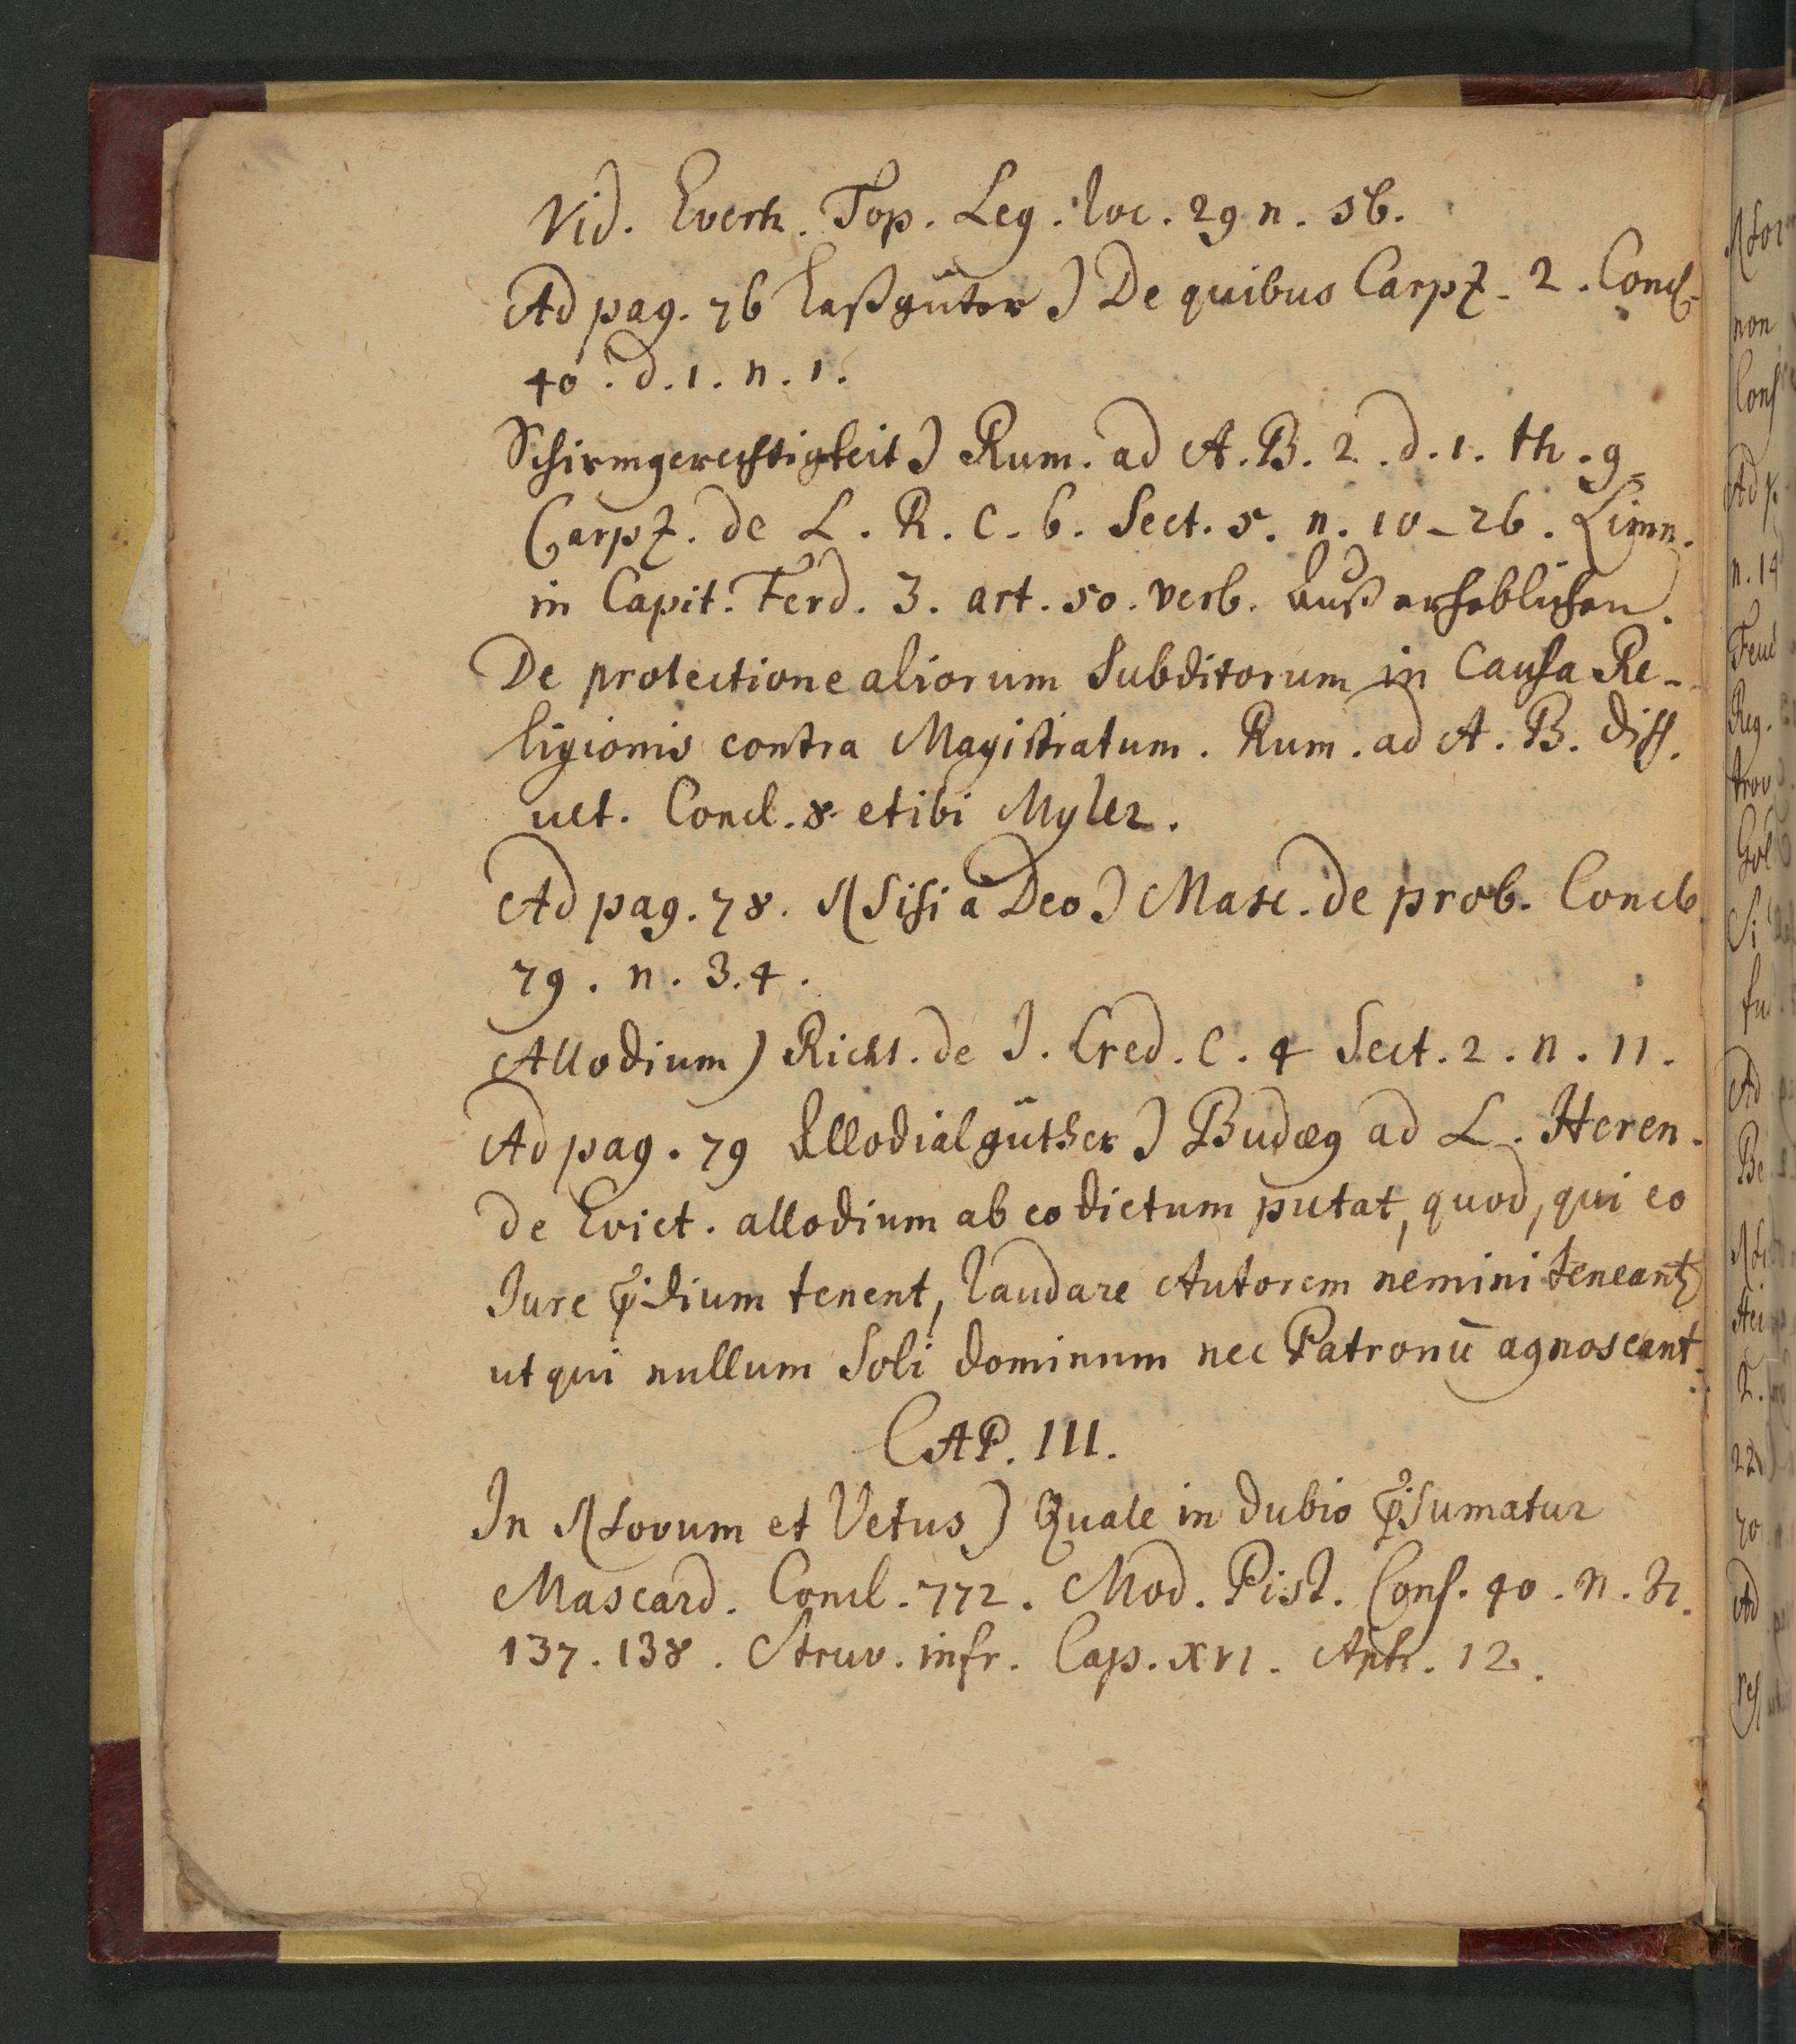 Vid. Everh. Top. Leg. loc. 29 n. 56.
Ad pag. 76 Laßgüter) De quibus Carpz. 2. Concl.
40. d. 1. n. 1.
Schirmgerechtigkeit) Rum. ad A. B. 2. d. 1. th. 9
Carpz. de L. R. c. 6. Sect. 5. n. 10-26. Limn.
in Capit. Ferd. 3. art. 50. verb. auß erheblichen.
De protectione aliorum Subditorum in Causa Re-
ligionis contra Magistratum. Rum. ad A. B. diss.
ult. Concl. 8. et ibi Myler.
Ad pag. 78. Nisi à Deo) Masc. de prob. Concl.
79. n. 3. 4.
Allodium) Richt. de J. Cred. c. 4 Sect. 2. n. 11.
Ad pag. 79 Allodialgüther) Budæg ad L. Heren.
de Evict. allodium ab eo dictum putat, quod, qui eo
Jure p̃dium tenent, laudare Autorem nemini teneantz
ut qui nullum Soli dominum nec Patronū agnoscant.
CAP. III.
In Novum et Vetus) Quale in dubio p̃sumatur
Mascard. Concl. 772. Mod. Pist. Cons. 40. n.
137. 138. Struv. infr. Cap. XVI. Aph. 12.
Nov
non
Cons
Ad p
n. 14
Feud
Reg.
Si
Ad
Be
2.
22
70
Ad